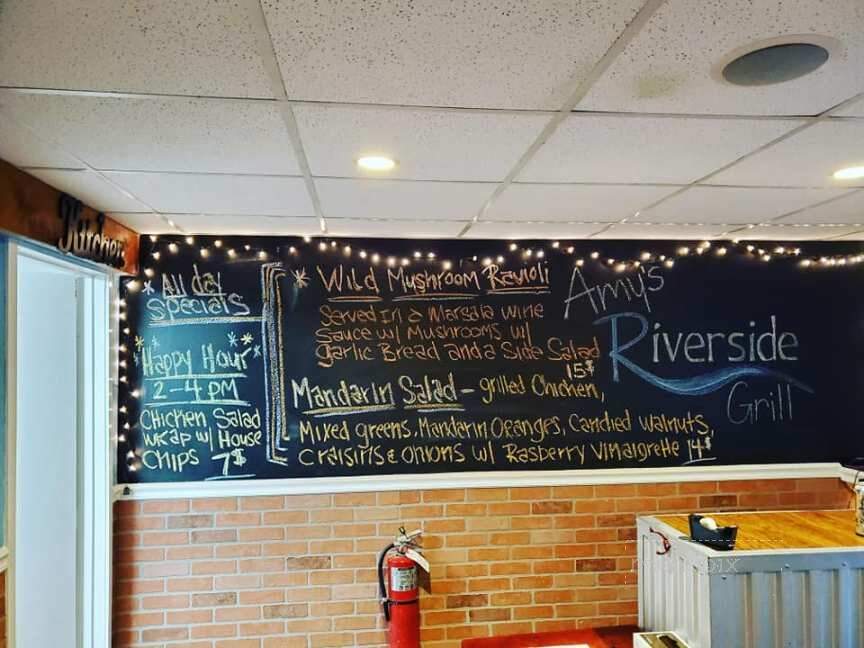 Kitchen
* All day
Specials
Happy Hour
2-4 PM
Chicken Salad
wrap w/ House
Chips 7$
* Wild Mushroom Ravioli
Served in a Marsala wine
Sauce w/ Mushrooms w/
garlic Bread and a Side Salad
15$
Mandarin Salad - grilled Chicken,
Mixed greens, Mandarin Oranges, Candied Walnuts,
Craisins & Onions w/ Rasberry Vinaigrette 14$
Amy's
Riverside
Grill